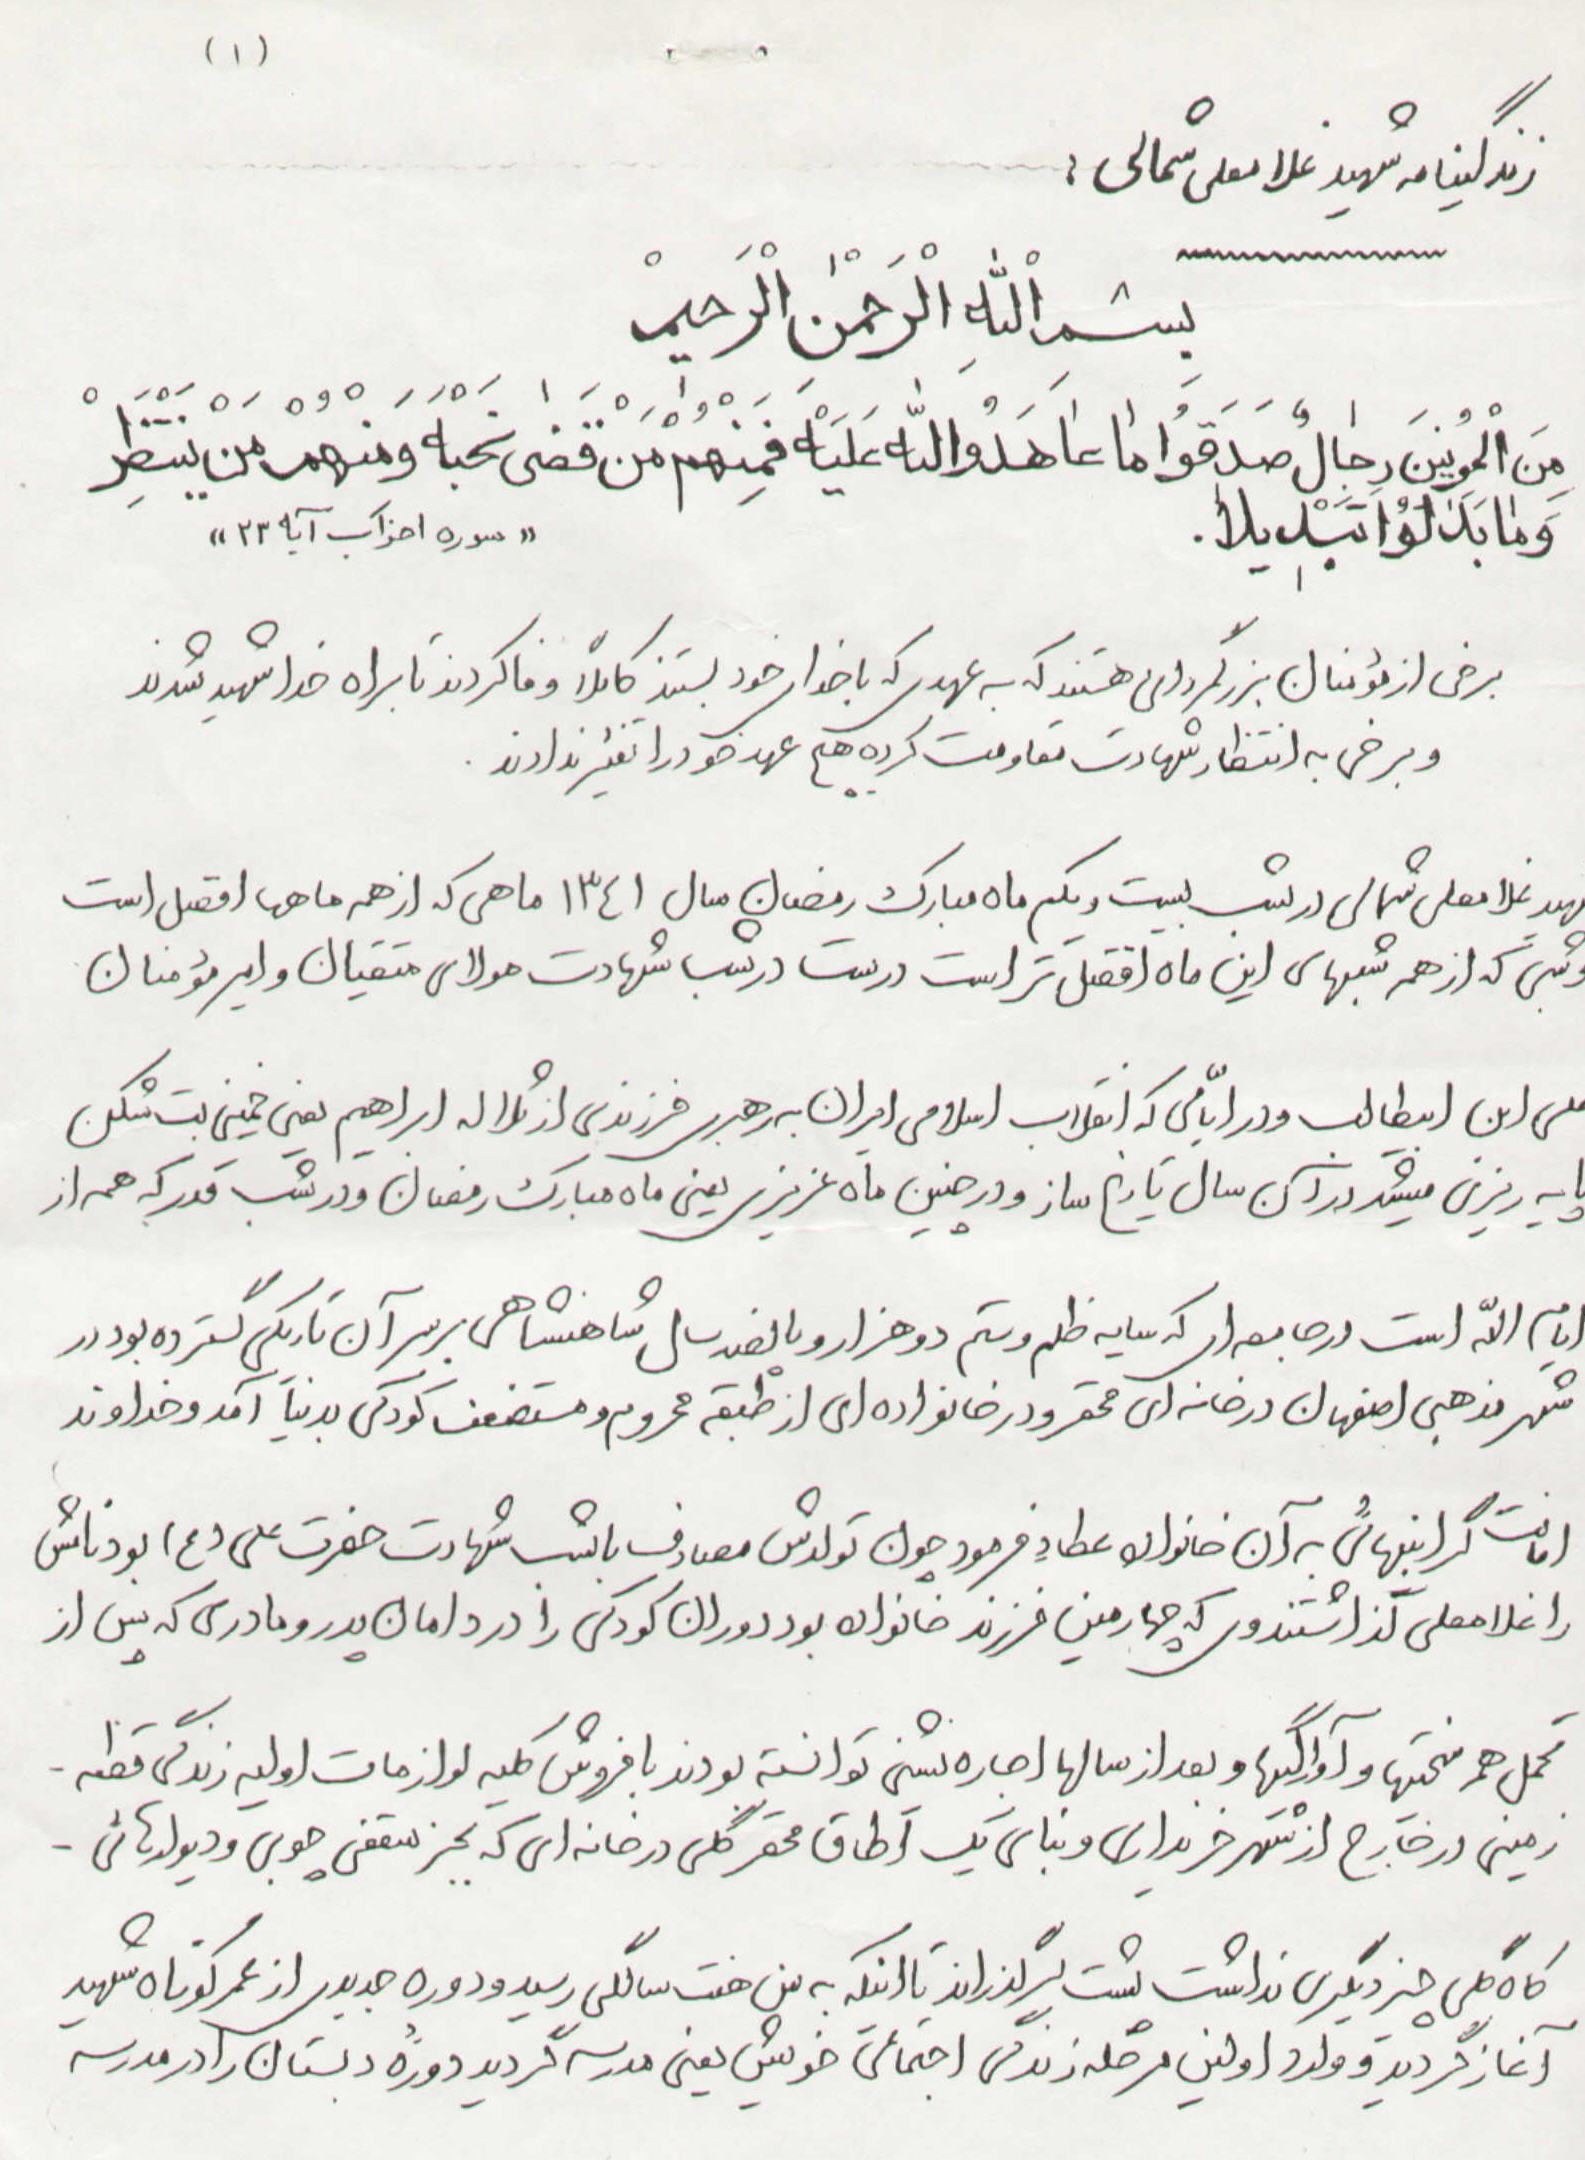 (۱)
زندگینامه شهید غلامعلی شمالی :
بِسْمِ اللّٰهِ الْرَحْمٰنِ الْرَحیمْ
مِنَ الْمُؤْمِنینَ رِجٰالٌ صَدَقوُا مٰا عٰاهَدُوا اللّٰه عَلَیْه فَمِنْهُمْ مَنْ قَضٰی نَحْبَهُ وَ مِنْهُمْ مَنْ یَنْتَظِرْ
وَ مٰا بَدَّلُوُا تَبْدیلاً .
« سوره احزاب آیه ۲۳ »
برخی از مؤمنان بزرگمردانی هستند که به عهدی که با خدای خود بستند کاملاً وفا کردند تا براه خدا شهید شدند
و برخی به انتظار شهادت مقاومت کرده هیچ عهد خود را تغییر ندادند .
شهید غلامعلی شمالی در شب بیست و یکم ماه مبارک رمضان سال ۱۳٤۱ ماهی که از همه ماهها افضل است
و شبی که از همه شبهای این ماه افضل تر است درست در شب شهادت مولای متقیان و امیر مؤمنان
علی ابن ابیطالب و در ایّامی که انقلاب اسلامی ایران به رهبری فرزندی از سُلاله ابراهیم یعنی خمینی بت شکن
پایه ریزی میشد در آن سال تاریخ ساز و در چنین ماه عزیزی یعنی ماه مبارک رمضان و در شب قدر که همه از
ایام اللّه است در جامعه ای که سایه ظلم و ستم دو هزار و پانصد سال شاهنشاهی بر سر آن تاریکی گسترده بود در
شهر مذهبی اصفهان در خانه ای محقر و در خانواده ای از طبقه محروم و مستضعف کودکی بدنیا آمد و خداوند
امانت گرانبهائی به آن خانواده عطاء فرمود چون تولدش مصادف با شب شهادت حضرت علی (ع) بود نامش
را غلامعلی گذاشتند وی که چهارمین فرزند خانواده بود دوران کودکی را در دامان پدر و مادری که پس از
تحمل همه سختیها و آوارگیها و بعد از سالها اجاره نشینی توانسته بودند با فروش کلیه لوازمات اولیه زندگی قطعه -
زمینی در خارج از شهر خریداری و بنای یک اطاق محقر گلی در خانه ای که بجز سقفی چوبی و دیوارهائی -
کاه گلی چیز دیگری نداشت پشت سر گذراند تا اینکه به سن هفت سالگی رسید و دوره جدیدی از عمر کوتاه شهید
آغاز گردید و وارد اولین مرحله زندگی اجتماعی خویش یعنی مدرسه گردید دورهٔ دبستان را در مدرسه